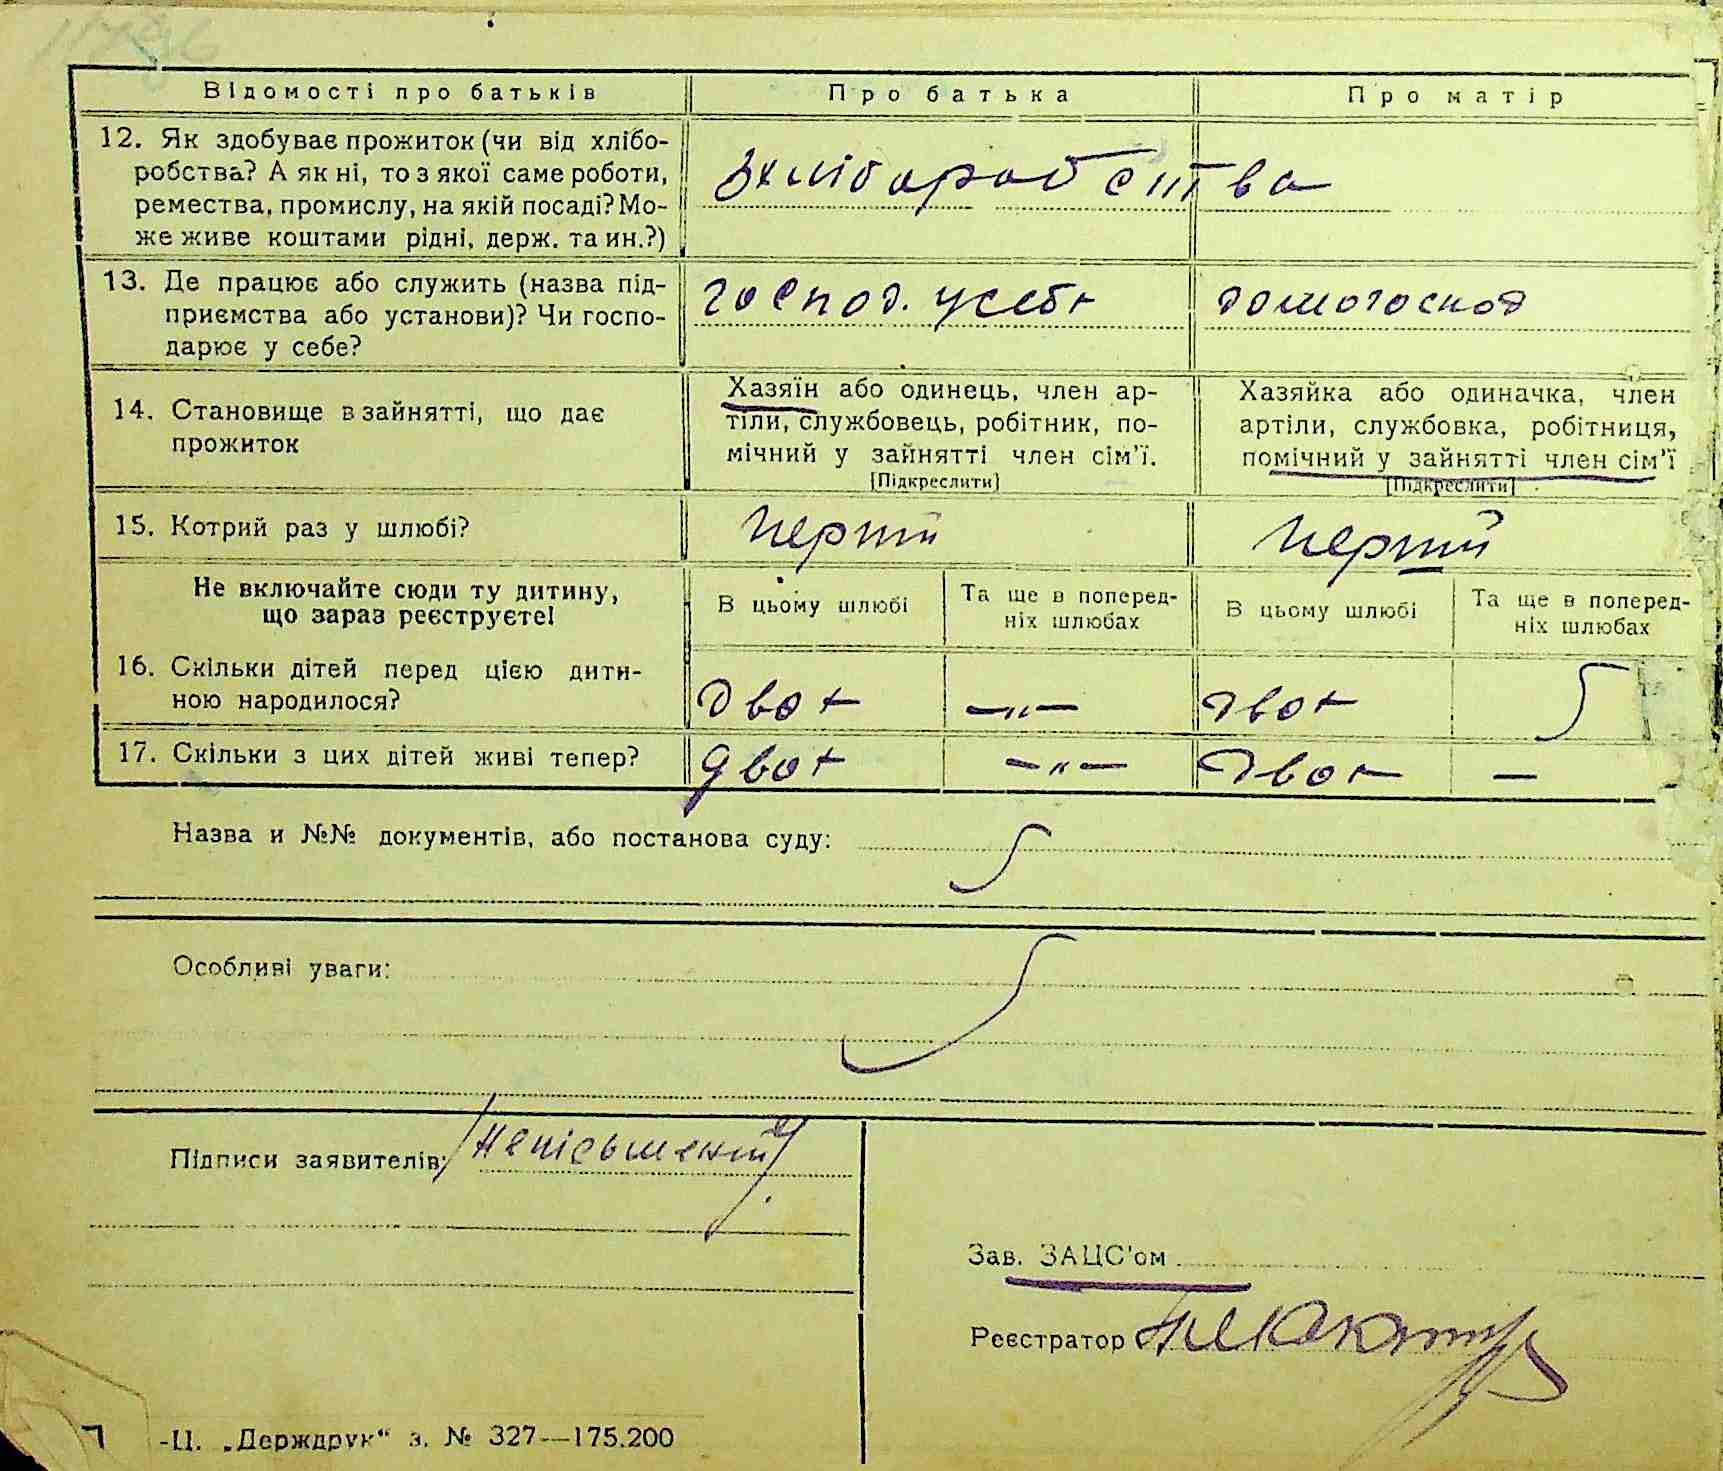 Відомості про батьків Про батька Про матір
12. Як здобуває прожиток (чи від хлібо-
робства? А як ні, то з якої саме роботи,
ремества, промислу, на якій посаді? Мо-
же живе коштами рідні, держ. та ин.?)
Зхліборобства
13. Де працює або служить (назва під-
приємства або установи)? Чи госпо-
дарює у себе?
господ. усебя
домогоспод
14. Становище в зайнятті, що дає
прожиток
Хазяїн або одинець, член ар-
тіли, службовець, робітник, по-
мічний у зайнятті член сім'ї.
[Підкреслити]
Хазяйка або одиначка, член
артіли, службовка, робітниця,
помічний у зайнятті член сім'ї
[Підкреслити]
15. Котрий раз у шлюбі? перший перший
Не включайте сюди ту дитину,
що зараз реєструєте!
В цьому шлюбі
Та ще в поперед-
ніх шлюбах
В цьому шлюбі
Та ще в поперед-
ніх шлюбах
16. Скільки дітей перед цією дити-
ною народилося?
двоє —"— двоє
17. Скільки з цих дітей живі тепер? двоє —"— двоє —
Назва и №№ документів, або постанова суду:
Особливі уваги:
Підписи заявителів: /неписьменний/
Зав. ЗАЦС'ом
Реєстратор
-Ц. „Держдрук“ з. № 327—175.200